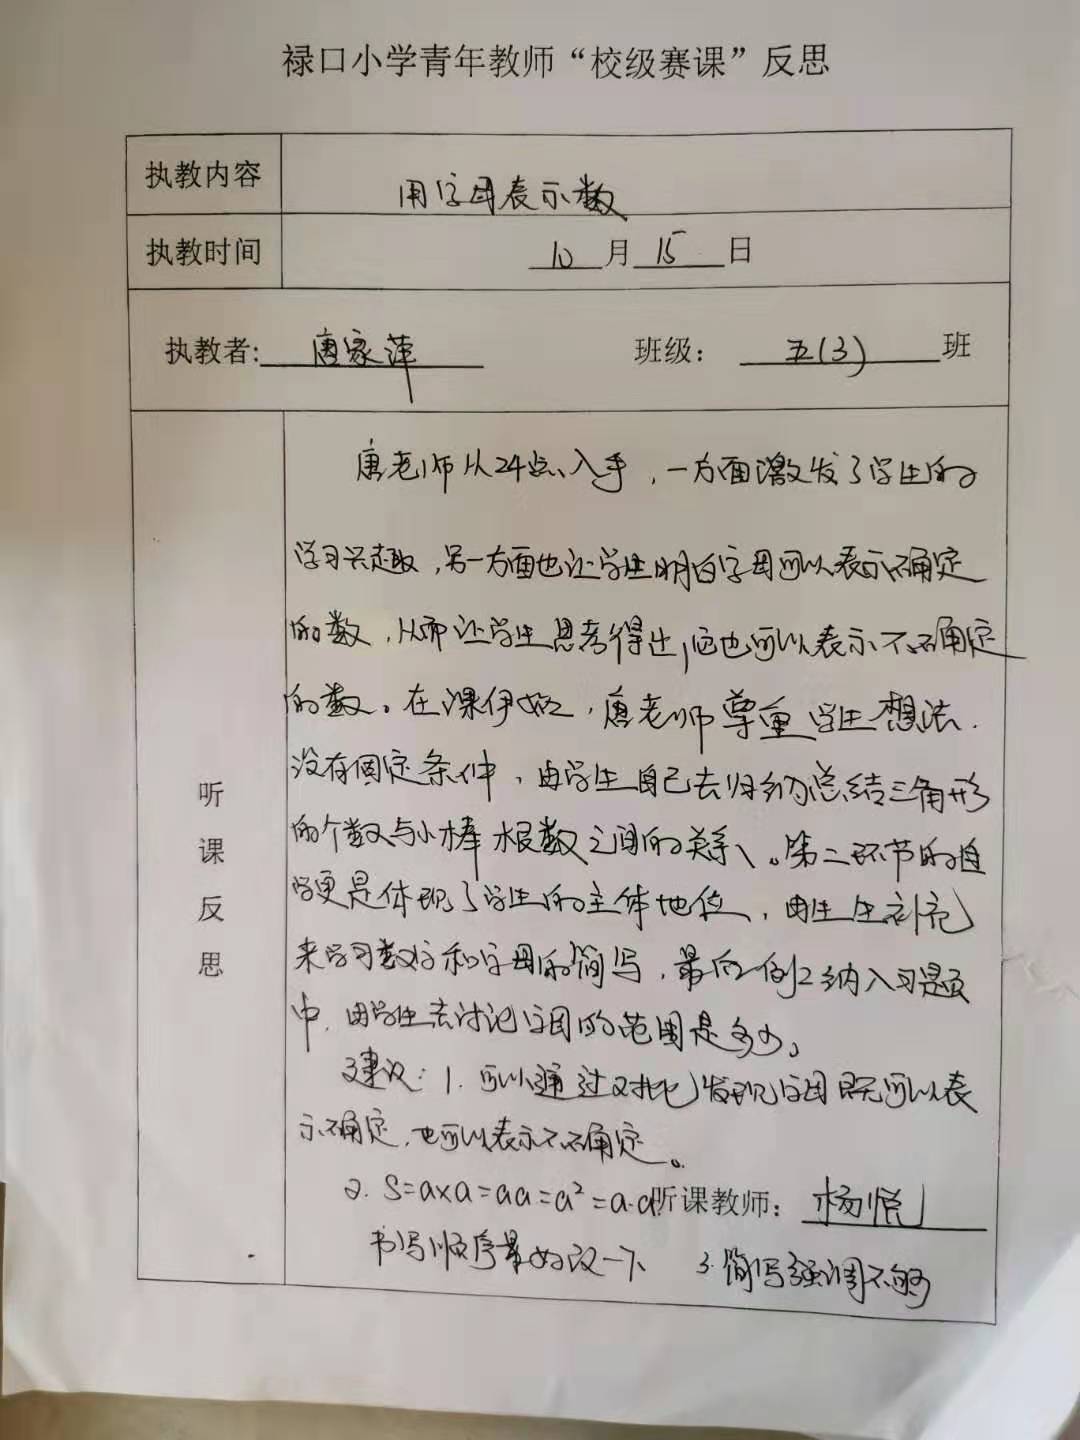 禄口小学青年教师“校级赛课”反思
执教内容 用字母表示数
执教时间 10月15日
执教者:唐家萍 班级：五(3)班
听课反思
唐老师从24点入手，一方面激发了学生的
学习兴趣，另一方面也让学生明白字母可以表示确定
的数，从而让学生思考得出，它也可以表示不确定
的数。在课伊始，唐老师尊重学生想法.
没有固定条件，由学生自己去归纳总结三角形
的个数与小棒根数之间的关系。第二环节的自
学更是体现了学生的主体地位，由生生补充
来学习数字和字母的简写，最后例2纳入习题
中，由学生去讨论字母的范围是多少。
建议：1. 可以通过对比，发现字母既可以表
示确定，也可以表示不确定。
2. S=a×a=aa=a²=a·a 听课教师：杨悦
书写顺序最好改一下 3.简写强调不够